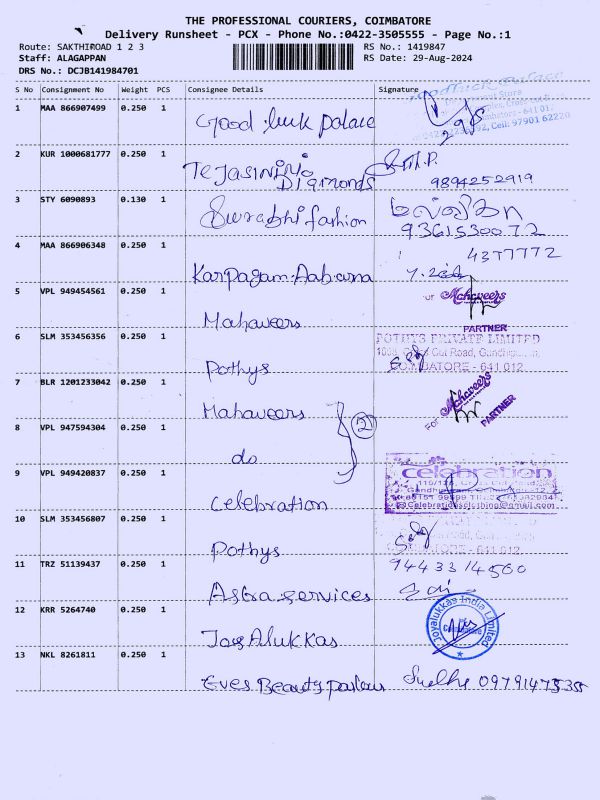 THE PROFESSIONAL COURIERS, COIMBATORE
Delivery Runsheet - PCX - Phone No.:0422-3505555 - Page No.:1
Route: SAKTHIROAD 1 2 3 RS No.: 1419847
Staff: ALAGAPPAN RS Date: 29-Aug-2024
DRS No.: DCJB141984701
S No Consignment No Weight PCS Consignee Details Signature
1 MAA 866907499 0.250 1 Good luck palace
Cell: 97901 62220
2 KUR 1000681777 0.250 1 Tejasvini Diamonds
9894252919
3 STY 6090893 0.130 1 Surabhi fashion
9361530072
4 MAA 866906348 0.250 1 Karpagam Aabarna
4377772
5 VPL 949454561 0.250 1 Mahaveers
For Mahaveers
PARTNER
6 SLM 353456356 0.250 1 Pothys
POTHYS PRIVATE LIMITED
COIMBATORE - 641 012
7 BLR 1201233042 0.250 1 Mahaveers
For Mahaveers
PARTNER
8 VPL 947594304 0.250 1 do
2
9 VPL 949420837 0.250 1 Celebration
celebration
10 SLM 353456807 0.250 1 Pothys
641 012
11 TRZ 51139437 0.250 1 Astra services
9443314560
12 KRR 5264740 0.250 1 Joy Alukkas
Joyalukkas India Limited
13 NKL 8261811 0.250 1 Eves Beauty parlour